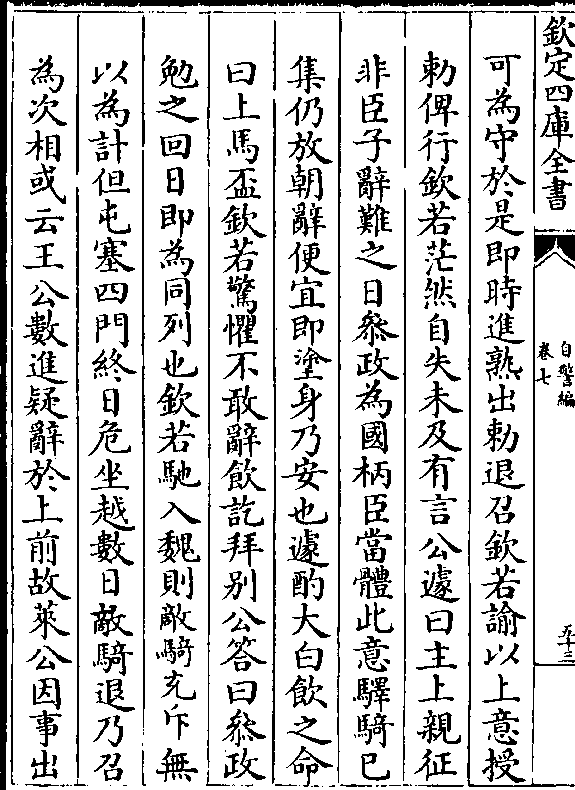 欽定四庫全書
自警編
卷七
五十三
可為守於是即時進熟出勅退召欽若諭以上意授
勅俾行欽若茫然自失未及有言公遽曰主上親征
非臣子辭難之日叅政為國柄臣當體此意驛騎已
集仍放朝辭便宜即塗身乃安也遽酌大白飲之命
曰上馬盃欽若驚懼不敢辭飲訖拜别公答曰叅政
勉之回日即為同列也欽若馳入魏則敵騎充斥無
以為計但屯塞四門終日危坐越數日敵騎退乃召
為次相或云王公數進疑辭於上前故萊公因事出